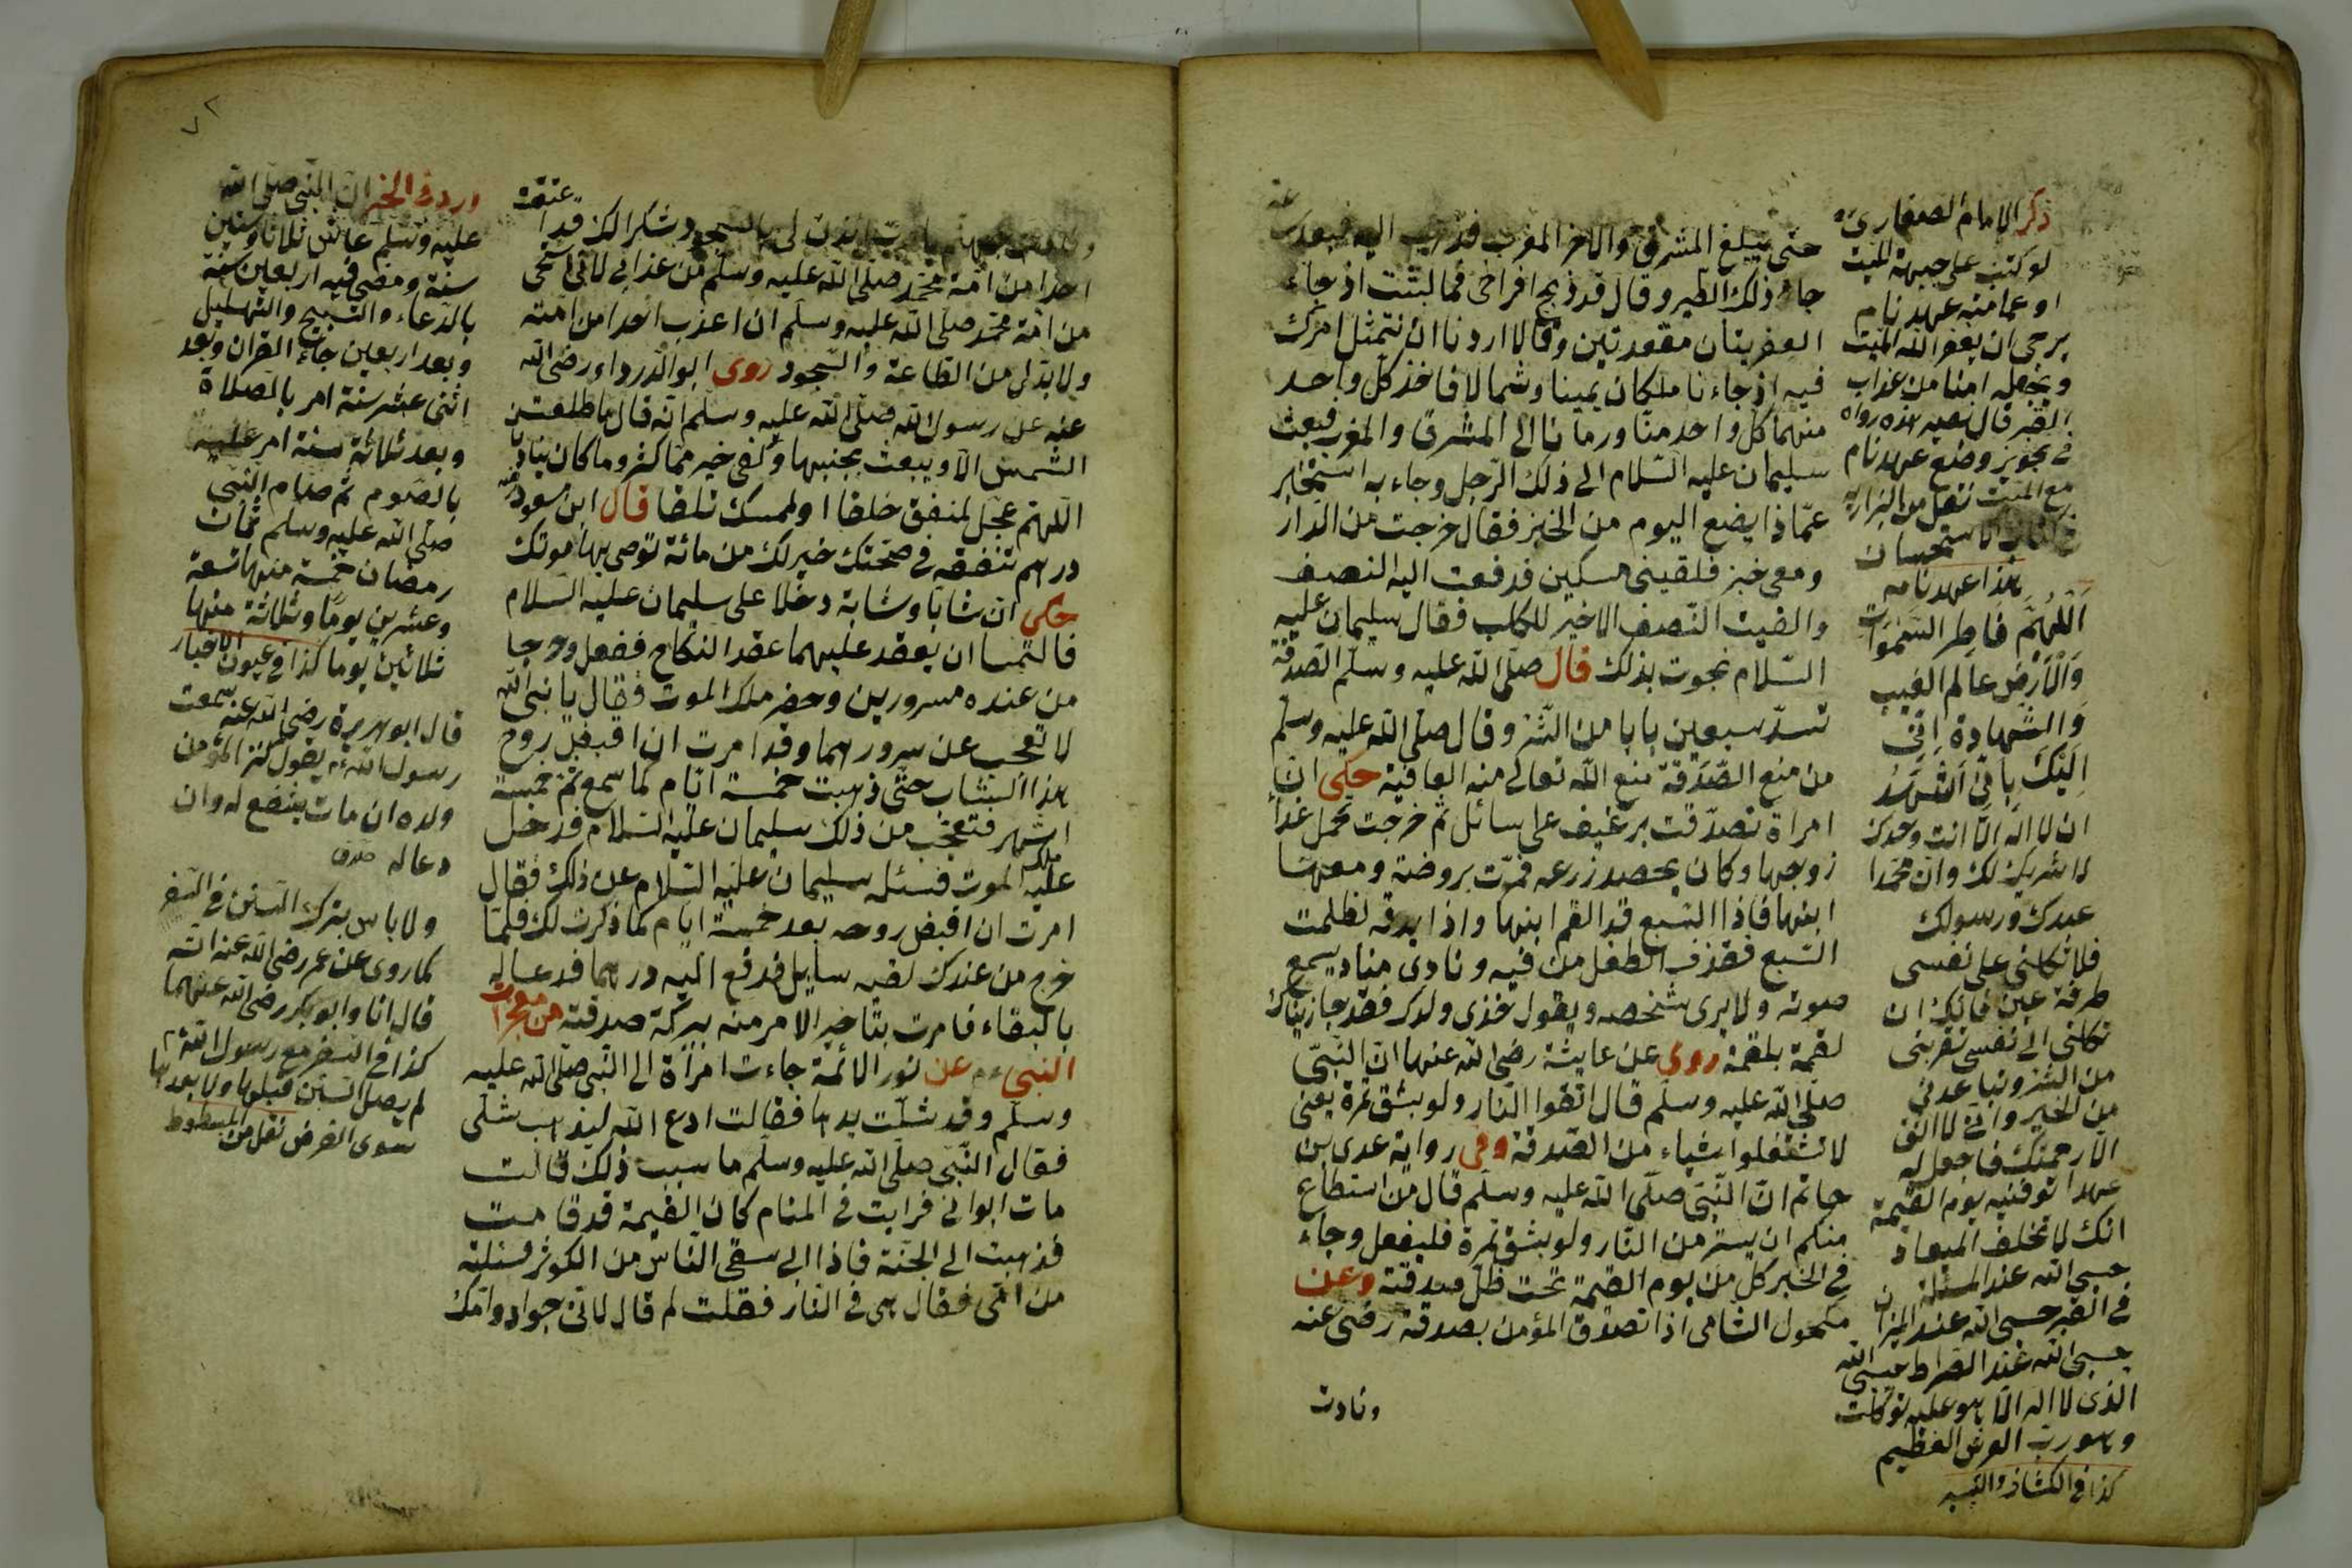 حتى يبلغ المشرق والآخر المغرب فذهب اليه فبعدت عنه
جاء ذلك الطير وقال قد ذبح افراخى فما لبثت اذ جاء
العفريتان مقعدتين وقالا اردنا ان نتمثل امرك
فيه اذ جاءنا ملكان يمينا وشمالا فاخذ كل واحد
منهما كل واحد منّا ورمانا الى المشرق والمغرب فبعث
سليمان عليه السّلام الى ذلك الرّجل وجاء به استخبر
عمّاذا يضع اليوم من الخبز فقال خرجت من الدار
ومعى خبز فلقينى مسكين فدفعت اليه النصف
والقيت النّصف الاخير للكلب فقال سليمان عليه
السّلام نجوت بذلك قال صلّى اللّه عليه وسلّم الصّدقة
تسدّ سبعين بابا من الشّرّ وقال صلّى اللّه عليه وسلم
من منع الصّدقة منع اللّه تعالى منه العافية حكى انّ
امراة تصدّقت برغيف على سائل ثم خرجت تحمل غداء
زوجها وكان يحصد زرعه فمرّت بروضة ومعها
ابنها فاذا السّبع قد القم ابنها واذا بيد قد لطمت
السّبع فقذف الطفل من فيه ونادى مناد يسمع
صوته ولا يرى شخصه ويقول خذى ولدك فقد جازيناك
لقمة بلقمة روى عن عايشة رضى اللّه عنها انّ النّبىّ
صلّى اللّه عليه وسلّم قال اتقوا النّار ولو بشق تمرة يعنى
لا تستقلوا شياء من الصّدقة وفى رواية عدى بن
حاتم انّ النّبىّ صلّى اللّه عليه وسلّم قال من استطاع
منكم ان يستتر من النّار ولو بشق تمرة فليفعل وجاء
فى الخبر كلّ من يوم القيمة تحت ظلّ صدقته وعن
مكحول الشّامى اذا تصدّق المؤمن بصدقة رضى عنه
ونادت
ذكر الامام الصفارى
لو كتب على جبهة الميت
او عمامته عهد نام
يرجى ان يغفر اللّه الميت
ويجعله امنا من عذاب
القبر قال نصير هذه رواه
فى تجويز وضع عهد نام
مع الميت نقل من البزازيه
فى كتاب الاستحسان
هذا عهد نامه
اَللّهمّ فاطر السّموات
والارض عالم الغيب
والشهادة انّى
اليك بانّى اشهد
ان لا اله الّا انت وحدك
لا شريك لك وانّ محمّدا
عبدك ورسولك
فلا تكلنى على نفسى
طرفة عين فانّك ان
تكلنى الى نفسى تقربنى
من الشرّ وتباعدنى
من الخير وانّى لا اثق
الّا برحمتك فاجعل لى
عهدا توفنيه يوم القيمة
انك لا تخلف الميعاد
حسبى اللّه عند المسئلة
فى القبر حسبى اللّه عند الميزان
حسبى اللّه عند الصراط حسبى اللّه
الذى لا اله الّا هو عليه توكّلت
وهو ربّ العرش العظيم
كذا فى الكشاف
٧٢
جهنّم يا ربّ ائذن لى بالسجود شكرا لك قد اعتقت
احدا من امّة محمّد صلّى اللّه عليه وسلّم من عذابى لانى استحى
من امّة محمّد صلّى اللّه عليه وسلّم ان اعذب احدا من امّته
ولا بدّ لى من الطّاعة والسّجود روى ابو الدرداء رضى اللّه
عنه عن رسول اللّه صلّى اللّه عليه وسلّم انّه قال ما طلعت
الشّمس الّا ويبعث بجنبيها وكفى خير ممّا كثر وما كان يناد
اللّهمّ عجّل لمنفق خلفا او لممسك تلفا قال ابن مسعود
درهم تنفقه فى صحّتك خير لك من مائة توصى بها موتك
حكى انّ شابّا وشابة دخلا على سليمان عليه السّلام
فالتمسا ان يعقد عليهما عقد النكاح ففعل وخرجا
من عنده مسرورين وحضر ملك الموت فقال يا نبى اللّه
لا تعجب عن سرورهما وقد امرت ان اقبض روح
هذا الشّاب حتّى ذهبت خمسة ايّام كما سمع وتم خمسة
اشهر فتعجّب من ذلك سليمان عليه السّلام فدخل
عليه ملك الموت فسئله سليمان عليه السّلام عن ذلك فقال
امرت ان اقبض روحه بعد خمسة ايّام كما ذكرت لك فلمّا
خرج من عندك لقيه سايل فدفع اليه درهما فدعا له
بالبقاء فامرت بتاخير الامر منه ببركة صدقته من معجزات
النبى م عن نور الائمّة جاءت امراة الى النّبى صلّى اللّه عليه
وسلّم وقد شلّت يدها فقالت ادع اللّه ليذهب شلّى
فقال النّبى صلّى اللّه عليه وسلّم ما سبب ذلك قالت
مات ابواى فرايت فى المنام كان القيمة قد قامت
فذهبت الى الجنّة فاذا ابى سقى النّاس من الكوثر فسئلته
من امّى فقال هى فى النّار فقلت لم قال لانّى جواد وامّك
ورد فى الخبر ان النّبى صلّى اللّه
عليه وسلم عاش ثلاثا وستين
سنة ومضى فيه اربعين سنة
بالدعاء والتسبيح والتهليل
وبعد اربعين جاء القران وبعد
اثنى عشر سنة امر بالصلاة
وبعد ثلاثة سنة امر عليه
بالصوم ثم صام النبى
صلّى اللّه عليه وسلم ثمان
رمضان خمسة منها تسعة
وعشرين يوما وثلاثة منها
ثلاثين يوما كذا فى عيون الاخبار
قال ابو هريرة رضى اللّه عنه سمعت
رسول اللّه م يقول كنز المؤمن
ولده ان مات يشفع له وان
دعا له
ولا باس بترك السنن فى السفر
كما روى عن عمر رضى اللّه عنه انّه
قال انا وابو بكر رضى اللّه عنهما
كذا فى السفر مع رسول اللّه م
لم يصل السنن قبلها ولا بعدها
سوى الفرض نقل من المبسوط